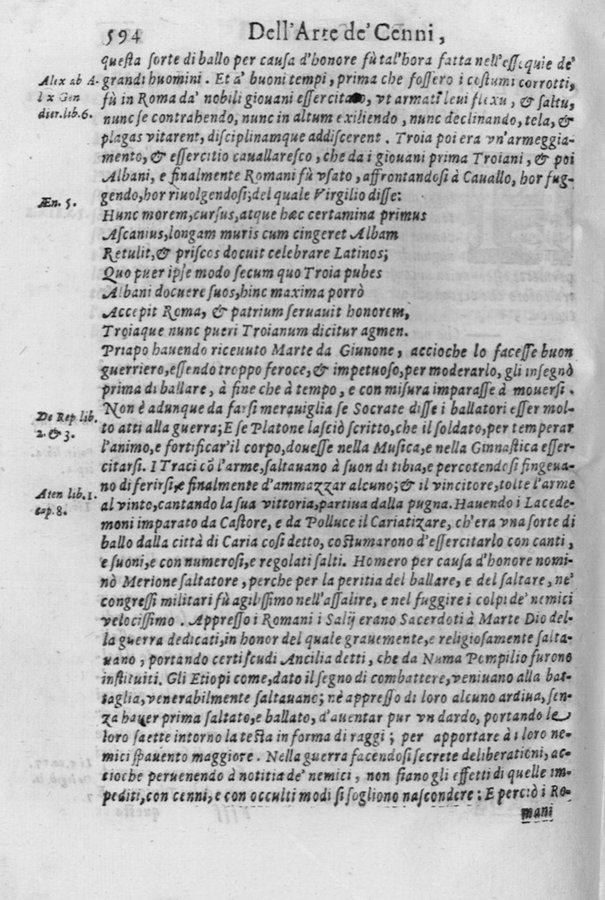 594 Dell'Arte de' Cenni,
questa sorte di ballo per causa d'honore fù tal'hora fatta nell'essequie de'
Alex ab A-
grandi huomini. Et a' buoni tempi, prima che fossero i costumi corrotti,
l x Gen
fù in Roma da' nobili giovani essercitato, vt armati leui flexu, & saltu,
dier. lib. 6.
nunc se contrahendo, nunc in altum exiliendo, nunc declinando, tela, &
plagas vitarent, disciplinamque addiscerent. Troia poi era vn'armeggia-
mento, & essercitio cauallaresco, che da i giouani prima Troiani, & poi
Albani, e finalmente Romani fù vsato, affrontandosi à Cauallo, hor fug-
gendo, hor riuolgendosi; del quale Virgilio disse:
Æn. 5.
Hunc morem, cursus, atque hæc certamina primus
Ascanius, longam muris cum cingeret Albam
Retulit, & priscos docuit celebrare Latinos;
Quo puer ipse modo secum quo Troia pubes
Albani docuere suos, hinc maxima porrò
Accepit Roma, & patrium seruauit honorem,
Troiaque nunc pueri Troianum dicitur agmen.
Priapo hauendo riceuuto Marte da Giunone, accioche lo facesse buon
guerriero, essendo troppo feroce, & impetuoso, per moderarlo, gli insegnò
prima di ballare, à fine che à tempo, e con misura imparasse à mouersi.
De Rep. lib.
Non è adunque da farsi merauiglia se Socrate disse i ballatori esser mol-
2. & 3.
to atti alla guerra; E se Platone lasciò scritto, che il soldato, per temperar
l'animo, e fortificar'il corpo, douesse nella Musica, e nella Ginnastica esser-
citarsi. I Traci cō l'arme, saltauano à suon di tibia, e percotendosi fingeua-
no di ferirsi, e finalmente d'ammazzar alcuno; & il vincitore, tolte l'arme
Aten lib. 1.
al vinto, cantando la sua vittoria, partiua dalla pugna. Hauendo i Lacede-
cap. 8.
moni imparato da Castore, e da Polluce il Cariatizare, ch'era vna sorte di
ballo dalla città di Caria cosi detto, costumarono d'essercitarlo con canti,
e suoni, e con numerosi, e regolati salti. Homero per causa d'honore nomi-
nò Merione saltatore, perche per la peritia del ballare, e del saltare, ne'
congressi militari fù agilissimo nell'assalire, e nel fuggire i colpi de' nemici
velocissimo. Appresso i Romani i Salij erano Sacerdoti à Marte Dio del-
la guerra dedicati, in honor del quale grauemente, e religiosamente salta-
uano, portando certi scudi Ancilia detti, che da Numa Pompilio furono
instituiti. Gli Etiopi come, dato il segno di combattere, veniuano alla bat-
taglia, venerabilmente saltauano; nè appresso di loro alcuno ardiua, sen-
za hauer prima saltato, e ballato, d'auentar pur vn dardo, portando le
loro saette intorno la testa in forma di raggi; per apportare à i loro ne-
mici spauento maggiore. Nella guerra facendosi secrete deliberationi, ac-
cioche peruenendo à notitia de' nemici, non siano gli effetti di quelle im-
pediti, con cenni, e con occulti modi si sogliono nascondere: E perciò i Ro-
mani